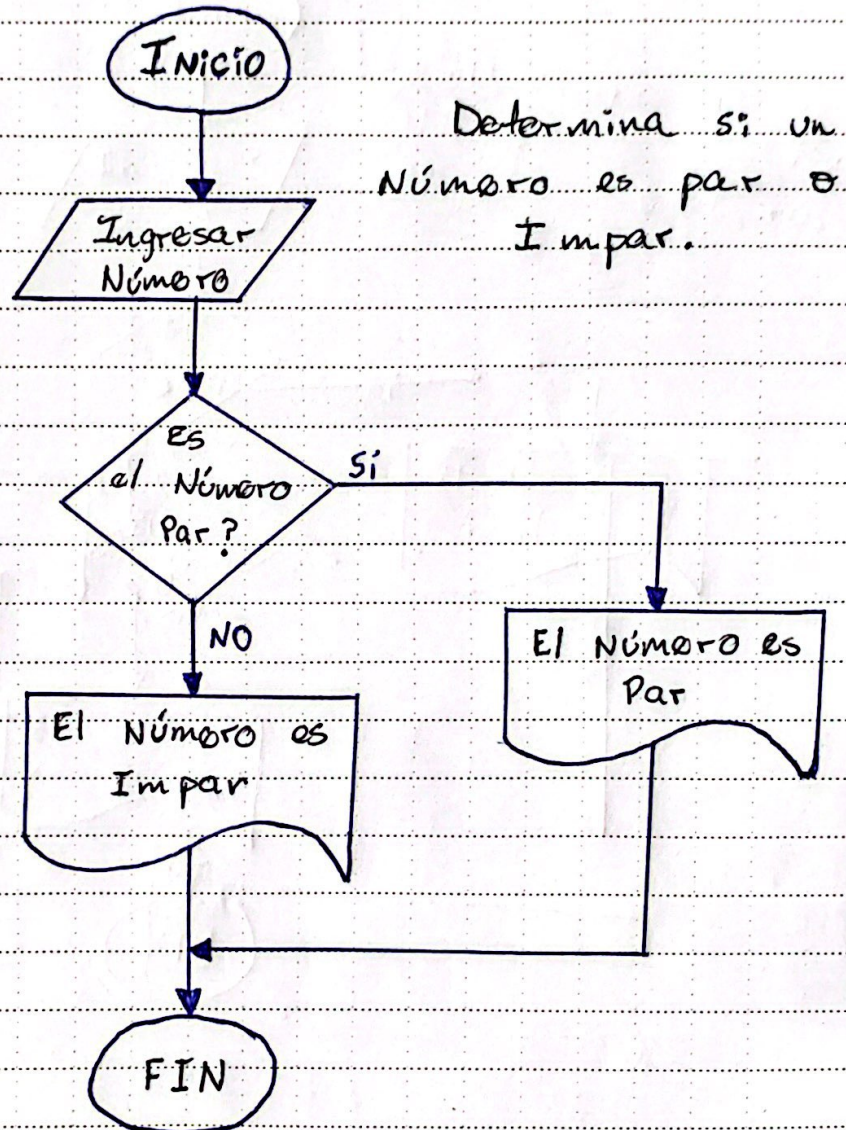 Inicio
Determina si un
Número es par o
Impar.
Ingresar
Número
Es
el Número
Par?
Sí
NO
El Número es
Par
El Número es
Impar
FIN